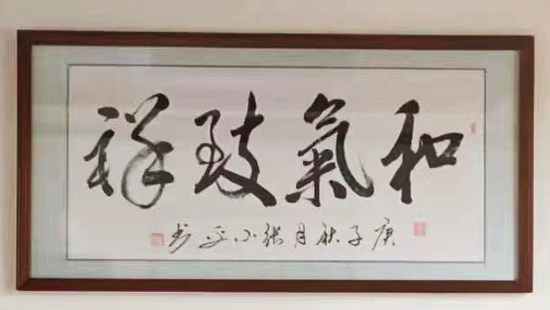 和氣致祥
庚子秋月張小平書